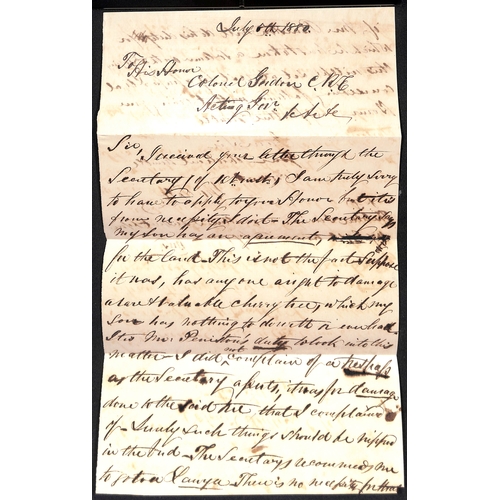 July 6th 1880.
To His Honor
Colonel Gordon C.
Acting Gov.
&c &c &c
Sir,
I received your letter through the
Secretary of I am truly sorry
to have to apply to your Honor but it is
from necessity I do it - The Secretary says
my son has an agreement
for the land - This is not the fact Suppose
it was, has any one a right to damage
a rare & valuable cherry tree, which my
Son has nothing to do with in
It is Mr. Peniston's duty to look into this
matter - I did not complain of a trespass
as the Secretary asserts, it was for damage
done to the said tree, that I complained
of - Surely such things should be nipped
in the bud - The Secretary recommends me
to go to a Lawyer There is no necessity for that